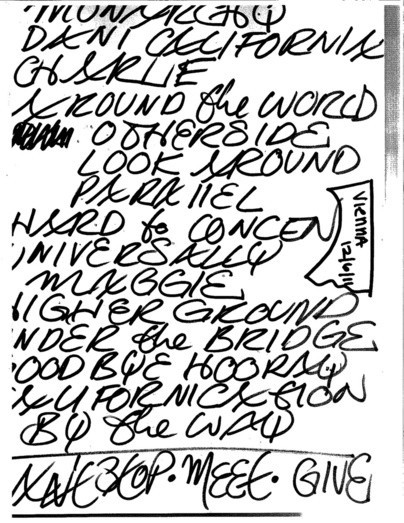 MONARCHY
DANI CALIFORNIA
CHARLIE
AROUND the WORLD
OTHERSIDE
LOOK AROUND
PARALLEL
HARD to CONCEN
VIENNA
12/6/11
UNIVERSALLY
MAGGIE
HIGHER GROUND
NDER the BRIDGE
OODBYE HOORAY
ALIFORNICATION
BY the WAY
MEET. GIVE